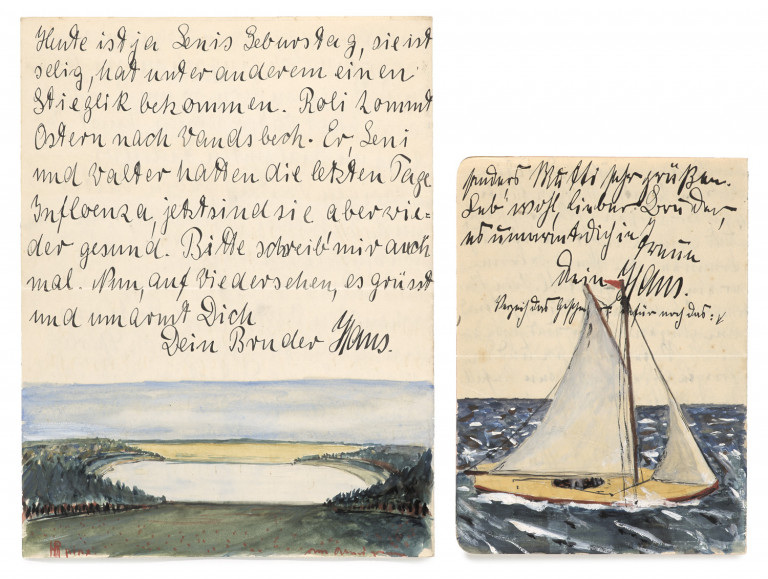 Heute ist ja Lenis Geburstag, sie ist
selig, hat unter anderem einen
Stieglik bekommen. Roli kommt
Ostern nach Vandsbech. Er, Leni
und Valter hatten die letzten Tage
Influenza, jetzt sind sie aber wie=
der gesund. Bitte schreib' mir auch
mal. Nun, auf Viedersehen, es grüsst
und umarmt Dich
Dein Bruder Hans.
sonders Mutti sehr grüßen.
Leb' wohl, lieber Bruder,
es umarmt Dich in
Treue
Dein Hans.
Verzeih das dafür noch das: